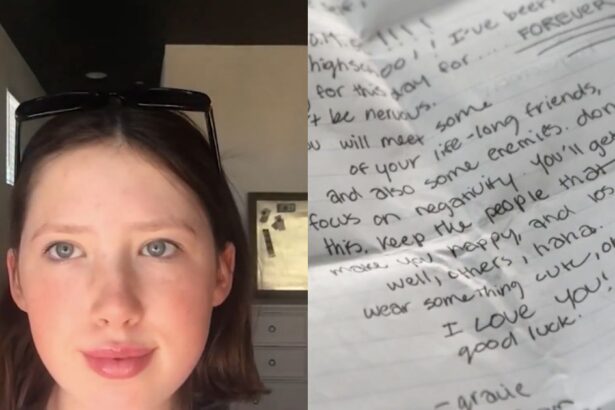 O.M.G !!!!
highschool!! I've been
for this day for..... FOREVER
't be nervous.
will meet some
of your life-long friends,
and also some enemies. don
focus on negativity. you'll get
this. keep the people that
make you happy, and los
well, others, haha.
wear something cute,
I LOVE YOU!
good luck.
- gracie